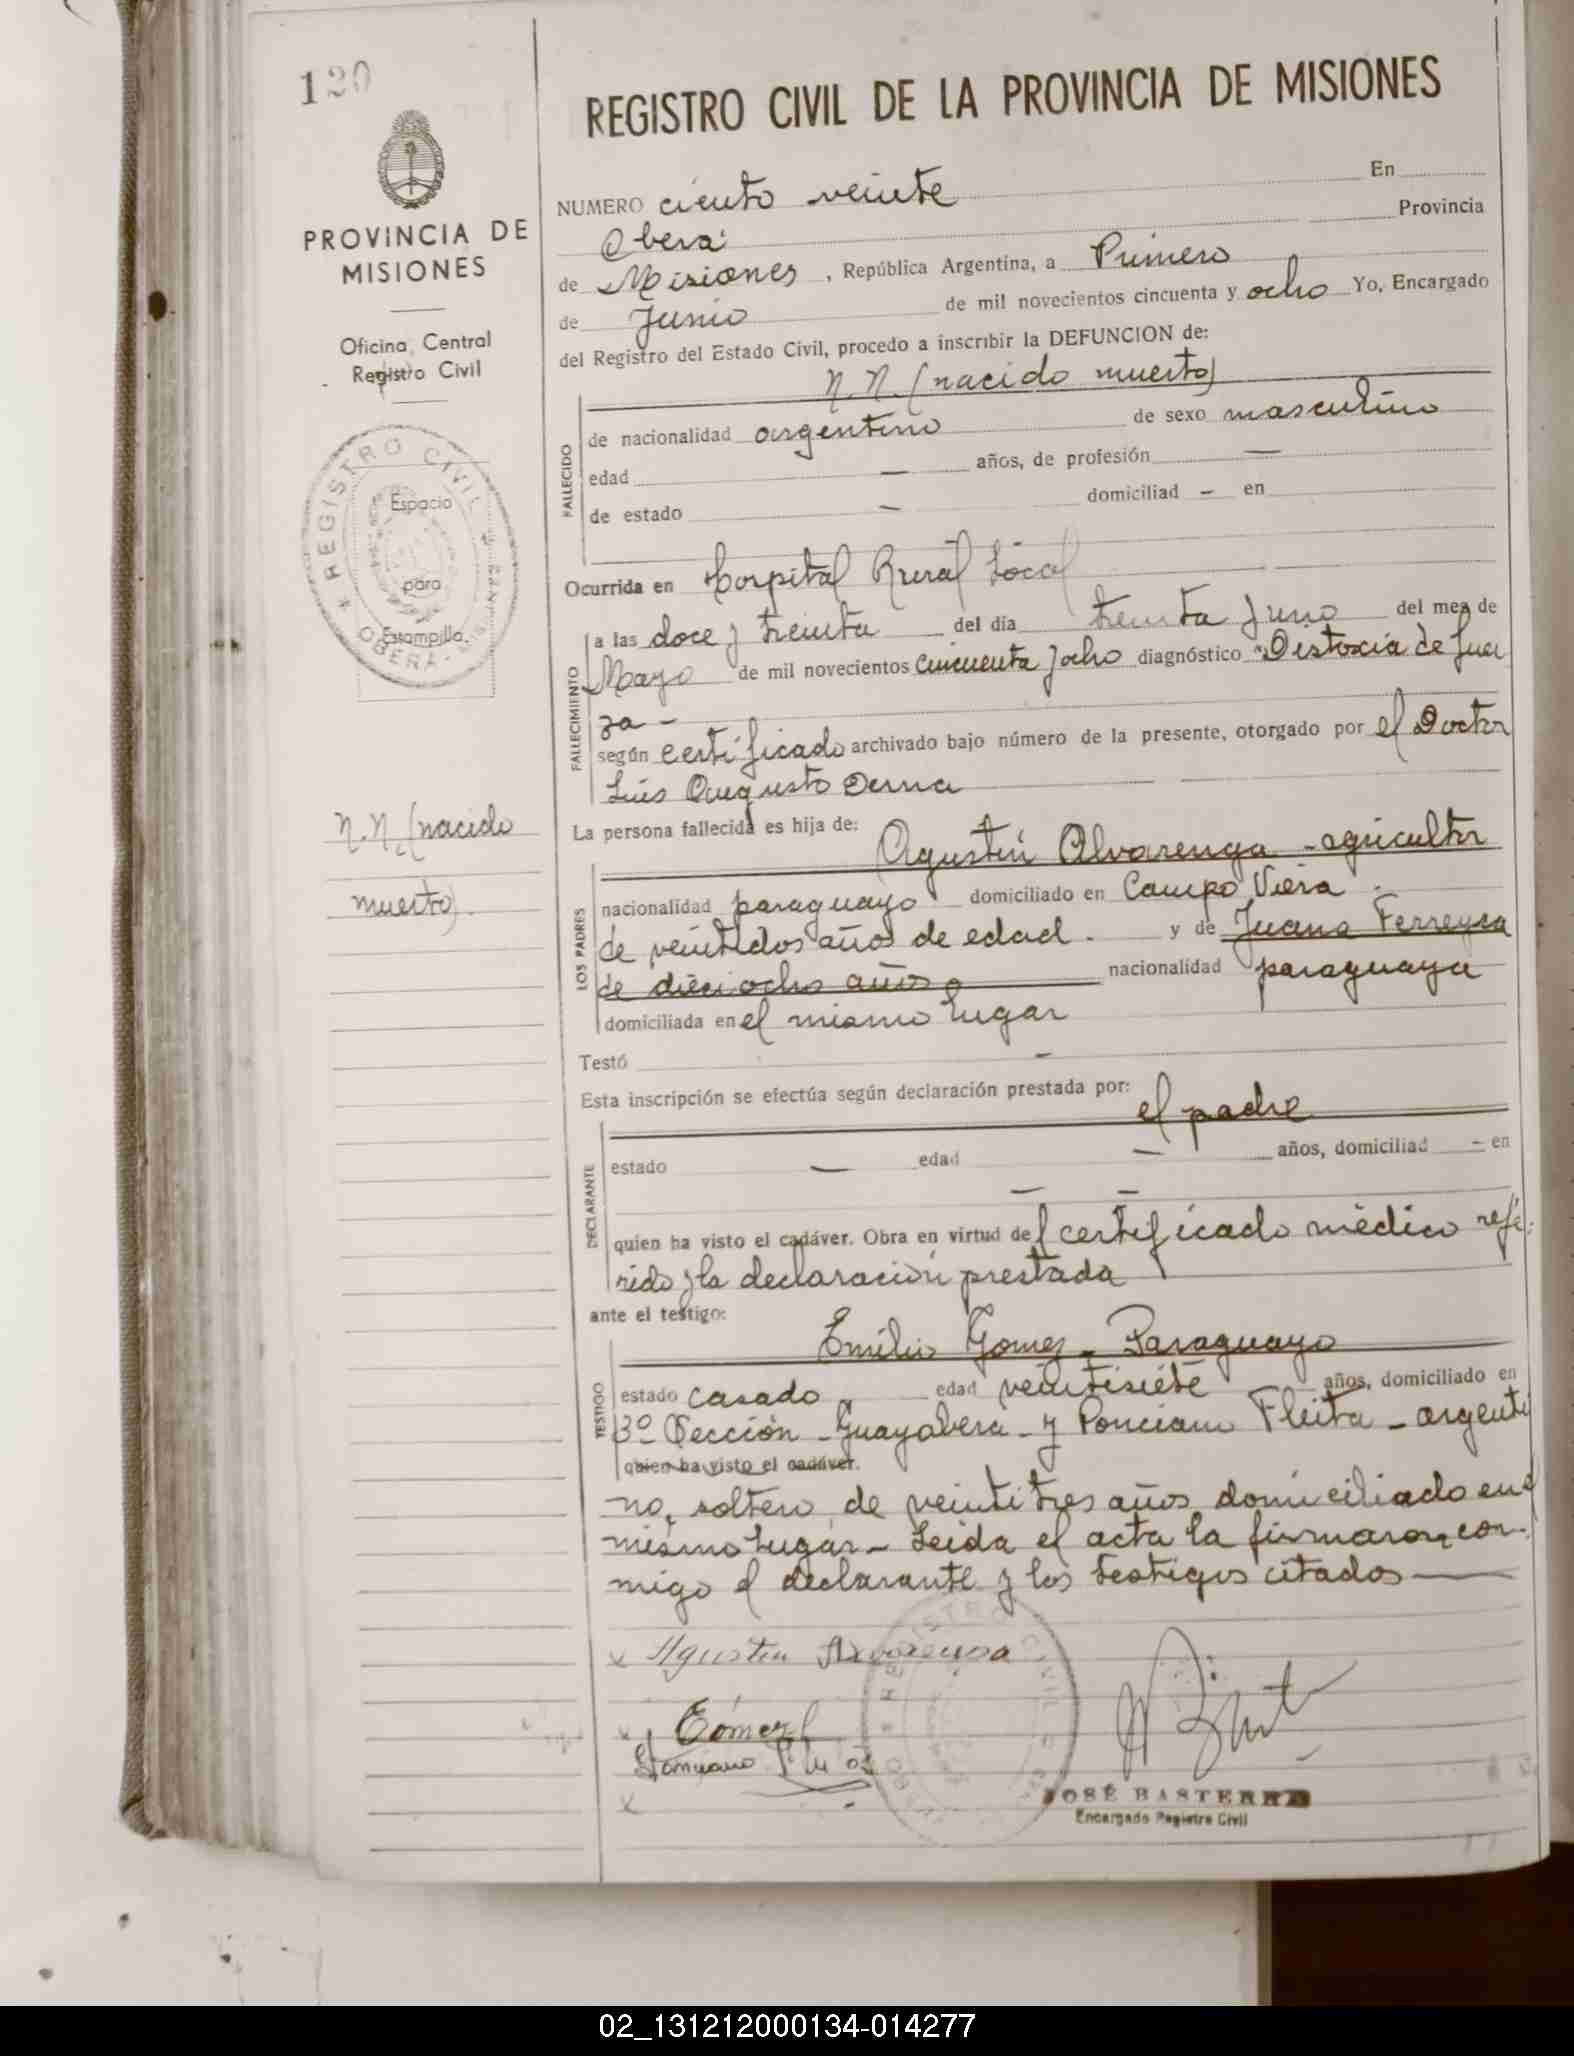 120
REGISTRO CIVIL DE LA PROVINCIA DE MISIONES
PROVINCIA DE
MISIONES
Oficina Central
Registro Civil
REGISTRO CIVIL
OBERA - MISIONES
Espacio
para
Estampilla
N.N. (nacido
muerto)
NUMERO ciento veinte En
Oberá Provincia
de Misiones, República Argentina, a Primero
de Junio de mil novecientos cincuenta y ocho Yo, Encargado
del Registro del Estado Civil, procedo a inscribir la DEFUNCION de:
N.N. (nacido muerto)
FALLECIDO
de nacionalidad argentino de sexo masculino
edad — años, de profesión —
de estado — domiciliad - en
Ocurrida en Hospital Rural Local
FALLECIMIENTO
a las doce y treinta del día treinta y uno del mes de
Mayo de mil novecientos cincuenta y ocho diagnóstico "Distoxia de fuer
za -
según certificado archivado bajo número de la presente, otorgado por el Doctor
Luis Augusto Derna
La persona fallecida es hija de:
Agustín Alvarenga - agricultor
LOS PADRES
nacionalidad paraguayo domiciliado en Campo Viera
de veintidos años de edad. y de Juana Ferreyra
de dieciocho años nacionalidad paraguaya
domiciliada en el mismo lugar
Testó —
Esta inscripción se efectúa según declaración prestada por:
el padre
DECLARANTE
estado — edad — años, domiciliad - en
— —
quien ha visto el cadáver. Obra en virtud del certificado médico refe-
rido y la declaración prestada
ante el testigo:
Emilio Gomez - Paraguayo
TESTIGO
estado casado edad veintisiete años, domiciliado en
3º Sección - Guayabera - y Ponciano Fleita - argenti
quien ha visto el cadáver.
no, soltero, de veintitres años domiciliado en el
mismo lugar - Leida el acta la firmaron con-
migo el declarante y los testigos citados —
x Agustin Alvarenga
x Gómez
x
REGISTRO CIVIL
JOSÉ BASTERRA
Encargado Registro Civil
02_131212000134-014277